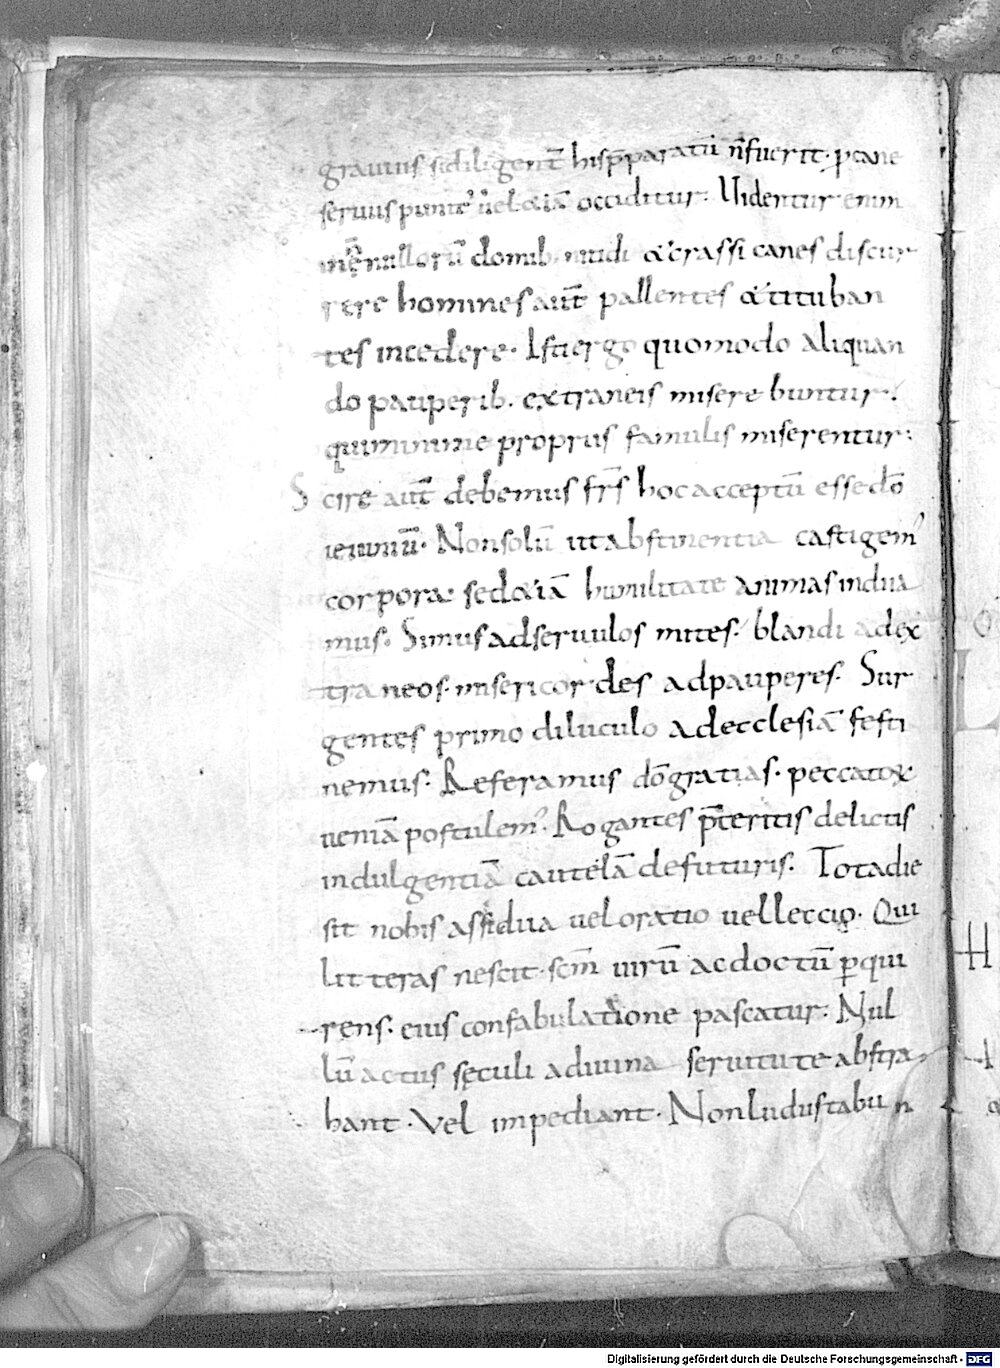 grauius si diligent̄ hisp̄paratū n̄fuerit· p cane
seruus punit᷑ uel &iā occiditur· Uidentur enim
in nullorū domib; nitidi &crassi canes discur
rere homines aut̄ pallentes &tituban
tes incedere· Isti ergo quomodo aliquan
do pauperib. extraneis misere buntur.
qui minime propriis famulis miserentur:
Scire aut̄ debemus fr̄s hoc acceptū esse dō
ieiuniū· Non solū ut abstinentia castigem᷒
corpora: sed &iā humilitate animas indua
mus. Simus ad seruulos mites· blandi ad ex
traneos· misericordes ad pauperes· Sur
gentes primo diluculo ad ecclesiā festi
nemus· Referamus dō gratias· peccatoꝝ
ueniā postulem᷒· Rogantes p̄teritis delictis
indulgentiā cautelā de futuris. Tota die
sit nobis assidua uel oratio uel leccio· Qui
litteras nescit· scm̄ uirū ac doctū ꝑqui
rens· eius confabulatione pascatur: Nul
lū actus sęculi a diuina seruitute abstra
hant· Vel impediant· Non ludus tabu
L
H